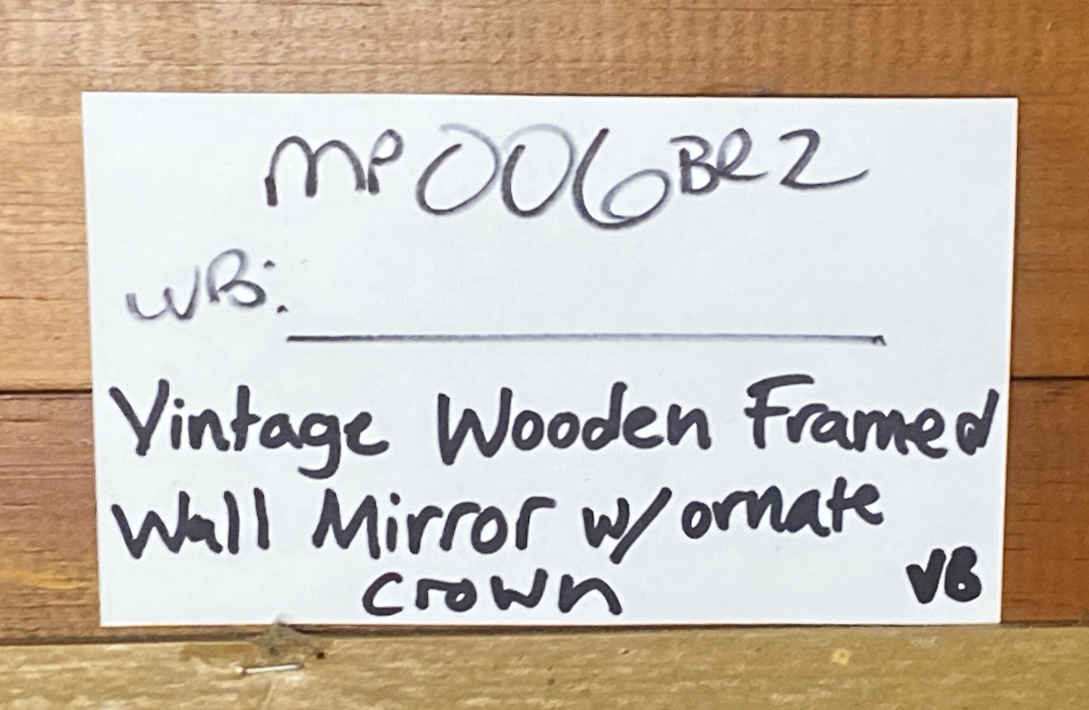 MP006BR2
WB:
Vintage Wooden Framed
Wall Mirror w/ ornate
crown
VB